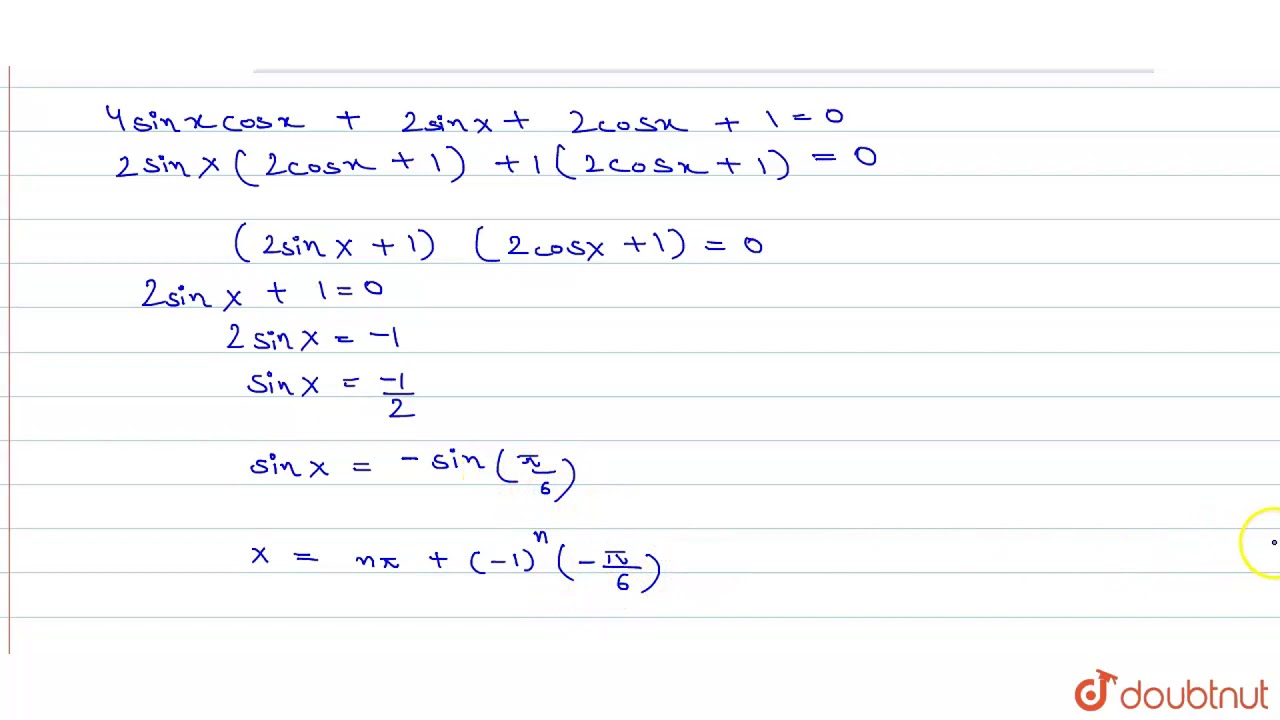 4sinx cosx + 2sinx + 2cosx + 1 = 0
2sinx (2cosx + 1) + 1 (2cosx + 1) = 0
(2sinx + 1) (2cosx + 1) = 0
2sinx + 1 = 0
2sinx = -1
sinx = -1/2
sinx = -sin(π/6)
x = nπ + (-1)^n (-π/6)
doubtnut